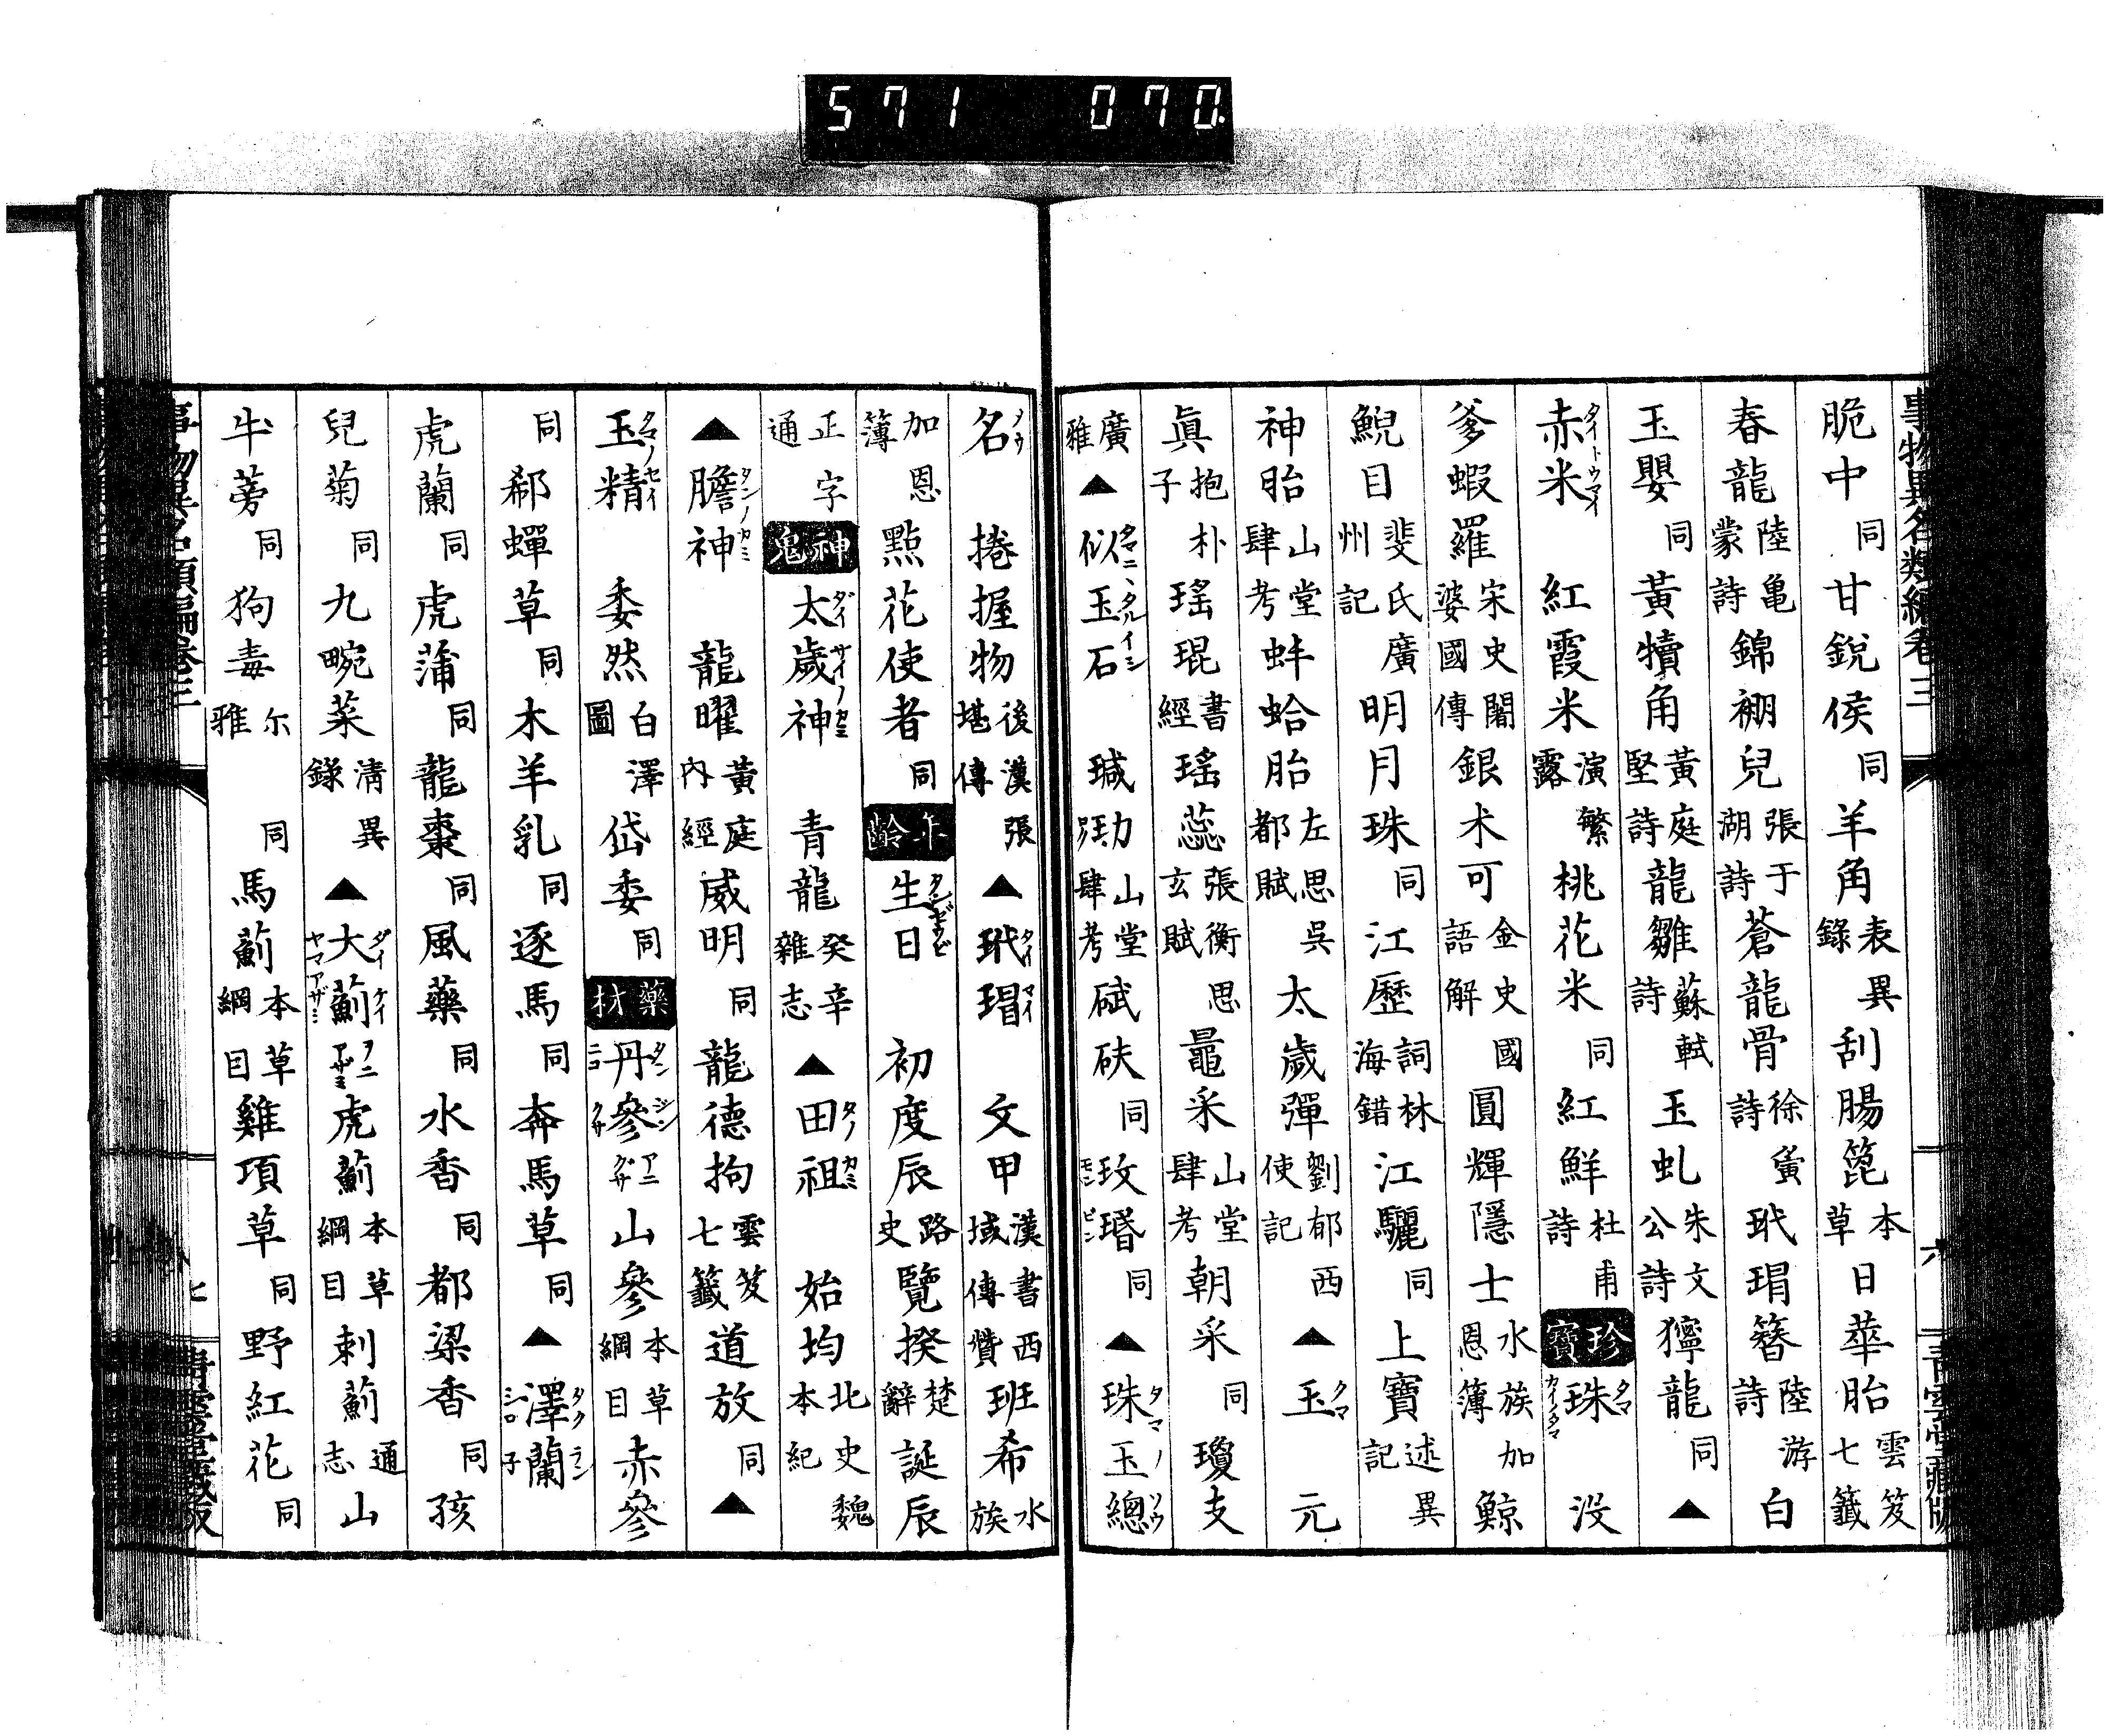 571 070.
事物異名類編卷三
脆中同甘銳侯同羊角表異錄刮腸箆本草日華胎雲笈七籤
春龍陸龜蒙詩錦棚兒張于湖詩蒼龍骨徐蛍詩玳瑁簪陸游詩白
玉嬰同黃犢角黃庭堅詩龍雛蘇軾詩玉虬朱文公詩獰龍同▲
赤米タイトウマイ紅霞米演繁露桃花米同紅鮮杜甫詩珍寶珠タマカイノタマ沒
爹蝦羅宋史闍婆國傳銀朮可金史國語解圓輝隱士水族加恩簿鯨
鯢目斐氏廣州記明月珠同江歷詞林海錯江驪同上寶述異記
神胎山堂肆考蚌蛤胎左思吳都賦太歲彈劉郁西使記▲玉タマ元
眞抱朴子瑤琨書經瑤蕊張衡思玄賦鼂采山堂肆考朝采同瓊支
廣雅▲似玉石タマニヽタルイシ瑊玏山堂肆考碔砆同玫瑰同▲珠玉總タマノソウ
六
青雲堂藏版
名ノウ捲握物後漢張堪傳▲玳瑁タイマイ文甲漢書西域傳贊班希水族
加恩簿點花使者同年齡生日タンジヤウビ初度辰路史覽揆楚辭誕辰
正字通神鬼太歲神ダイサイノカミ靑龍癸辛雜志▲田祖タノカミ始均北史魏本紀
▲膽神タンノカミ龍曜黃庭內經威明同龍德拘雲笈七籤道放同▲
玉精タマノセイ委然白澤圖岱委同藥材丹參タンジン山參本草綱目赤參
同郄蟬草同木羊乳同逐馬同奔馬草同▲澤蘭タクラン
虎蘭同虎蒲同龍棗同風藥同水香同都梁香同孩
兒菊同九畹菜淸異錄▲大薊ダイケイヤマアザミヲニアザミ虎薊本草綱目刺薊通志山
牛蒡同狗毒尔雅同馬薊本草綱目雞項草同野紅花同
事物異名類編卷三
七
靑雲堂藏版